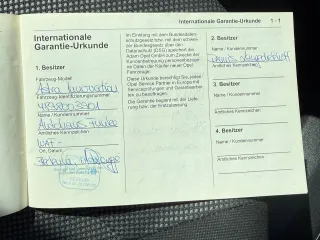 Internationale Garantie-Urkunde 1 - 1
Internationale
Garantie-Urkunde
1. Besitzer
Fahrzeug-Modell
Astra Innovation
Fahrzeug-Identifizierungsnummer
Name / Kundennummer
Autohaus
Amtliches Kennzeichen
WAT -
Ort, Datum
Im Einklang mit dem Bundesdaten-
schutzgesetz bzw. mit dem schwei-
zer Bundesgesetz über den
Datenschutz (DSG) speichert die
Adam Opel GmbH zum Zwecke der
Kundenbetreuung personenbezoge-
ne Daten der Käufer neuer Opel
Fahrzeuge.
Diese Urkunde berechtigt Sie, jeden
Opel Service Partner in Europa mit
Serviceprüfungen und Garantiearbei-
ten zu beauftragen.
Die Garantie beginnt mit der Liefe-
rung bzw. der Erstzulassung.
2. Besitzer
Name / Kundennummer
Amtliches Kennzeichen
3. Besitzer
Name / Kundennummer
Amtliches Kennzeichen
4. Besitzer
Name / Kundennummer
Amtliches Kennzeichen